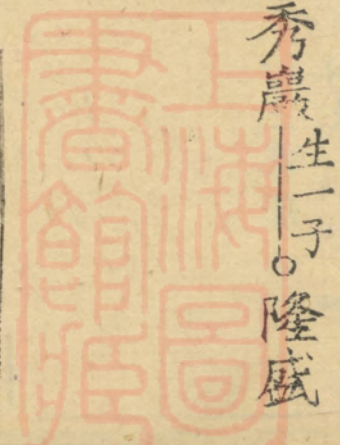 秀巖生一子隆盛
上海圖
書館藏